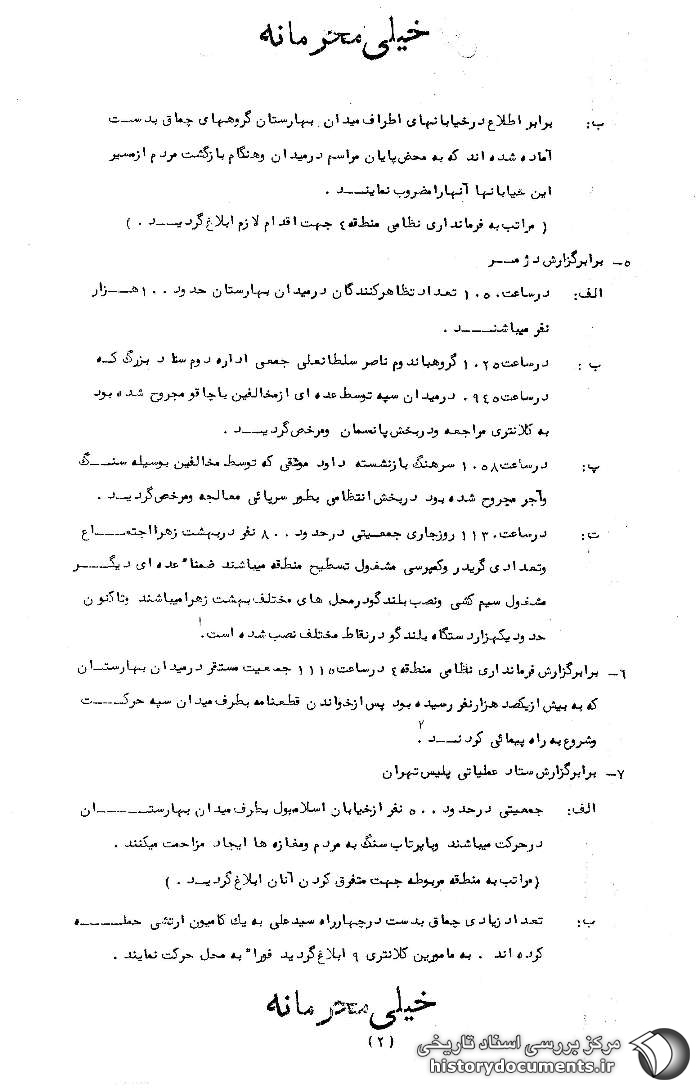 خیلی محرمانه
ب: برابر اطلاع در خیابانهای اطراف میدان بهارستان گروههای چماق بدست
آماده شده اند که به محض پایان مراسم در میدان و هنگام بازگشت مردم از مسیر
این خیابانها آنها را مضروب نمایند .
( مراتب به فرمانداری نظامی منطقه ٤ جهت اقدام لازم ابلاغ گردید . )
٥- برابر گزارش دژ مر
الف: در ساعت ١٠٥٠ تعداد تظاهرکنندگان در میدان بهارستان حدود ١٠٠ هزار
نفر میباشند .
ب: در ساعت ١٠٢٥ گروهباندوم ناصر سلطانعلی جمعی اداره دوم ستاد بزرگ که
در ساعت ٠٩٤٥ در میدان سپه توسط عده ای از مخالفین با چاقو مجروح شده بود
به کلانتری مراجعه و در بخش پانسمان و مرخص گردید .
پ: در ساعت ١٠٥٨ سرهنگ بازنشسته داود موثقی که توسط مخالفین بوسیله سنگ
و آجر مجروح شده بود در بخش انتظامی بطور سرپائی معالجه و مرخص گردید .
ت: در ساعت ١١٣٠ روز جاری جمعیتی در حدود ٨٠٠ نفر در بهشت زهرا اجتماع
و تعدادی گریدر و کمپرسی مشغول تسطیح منطقه میباشند ضمناً عده ای دیگر
مشغول سیم کشی و نصب بلندگو در محل های مختلف بهشت زهرا میباشند و تاکنون
حدود یکهزار دستگاه بلندگو در نقاط مختلف نصب شده است.١
٦- برابر گزارش فرمانداری نظامی منطقه ٤ در ساعت ١١١٥ جمعیت مستقر در میدان بهارستان
که به بیش از یکصد هزار نفر رسیده بود پس از خواندن قطعنامه بطرف میدان سپه حرکت
و شروع به راه پیمائی کردند .٢
٧- برابر گزارش ستاد عملیاتی پلیس تهران
الف: جمعیتی در حدود ٥٠٠ نفر از خیابان اسلامبول بطرف میدان بهارستان
در حرکت میباشند و با پرتاب سنگ به مردم و مغازه ها ایجاد مزاحمت میکنند .
(مراتب به منطقه مربوطه جهت متفرق کردن آنان ابلاغ گردید . )
ب: تعداد زیادی چماق بدست در چهارراه سیدعلی به یك کامیون ارتشی حمله
کرده اند . به مامورین کلانتری ٩ ابلاغ گردید فوراً به محل حرکت نمایند .
خیلی محرمانه
(٢)
مرکز بررسی اسناد تاریخی
historydocuments.ir